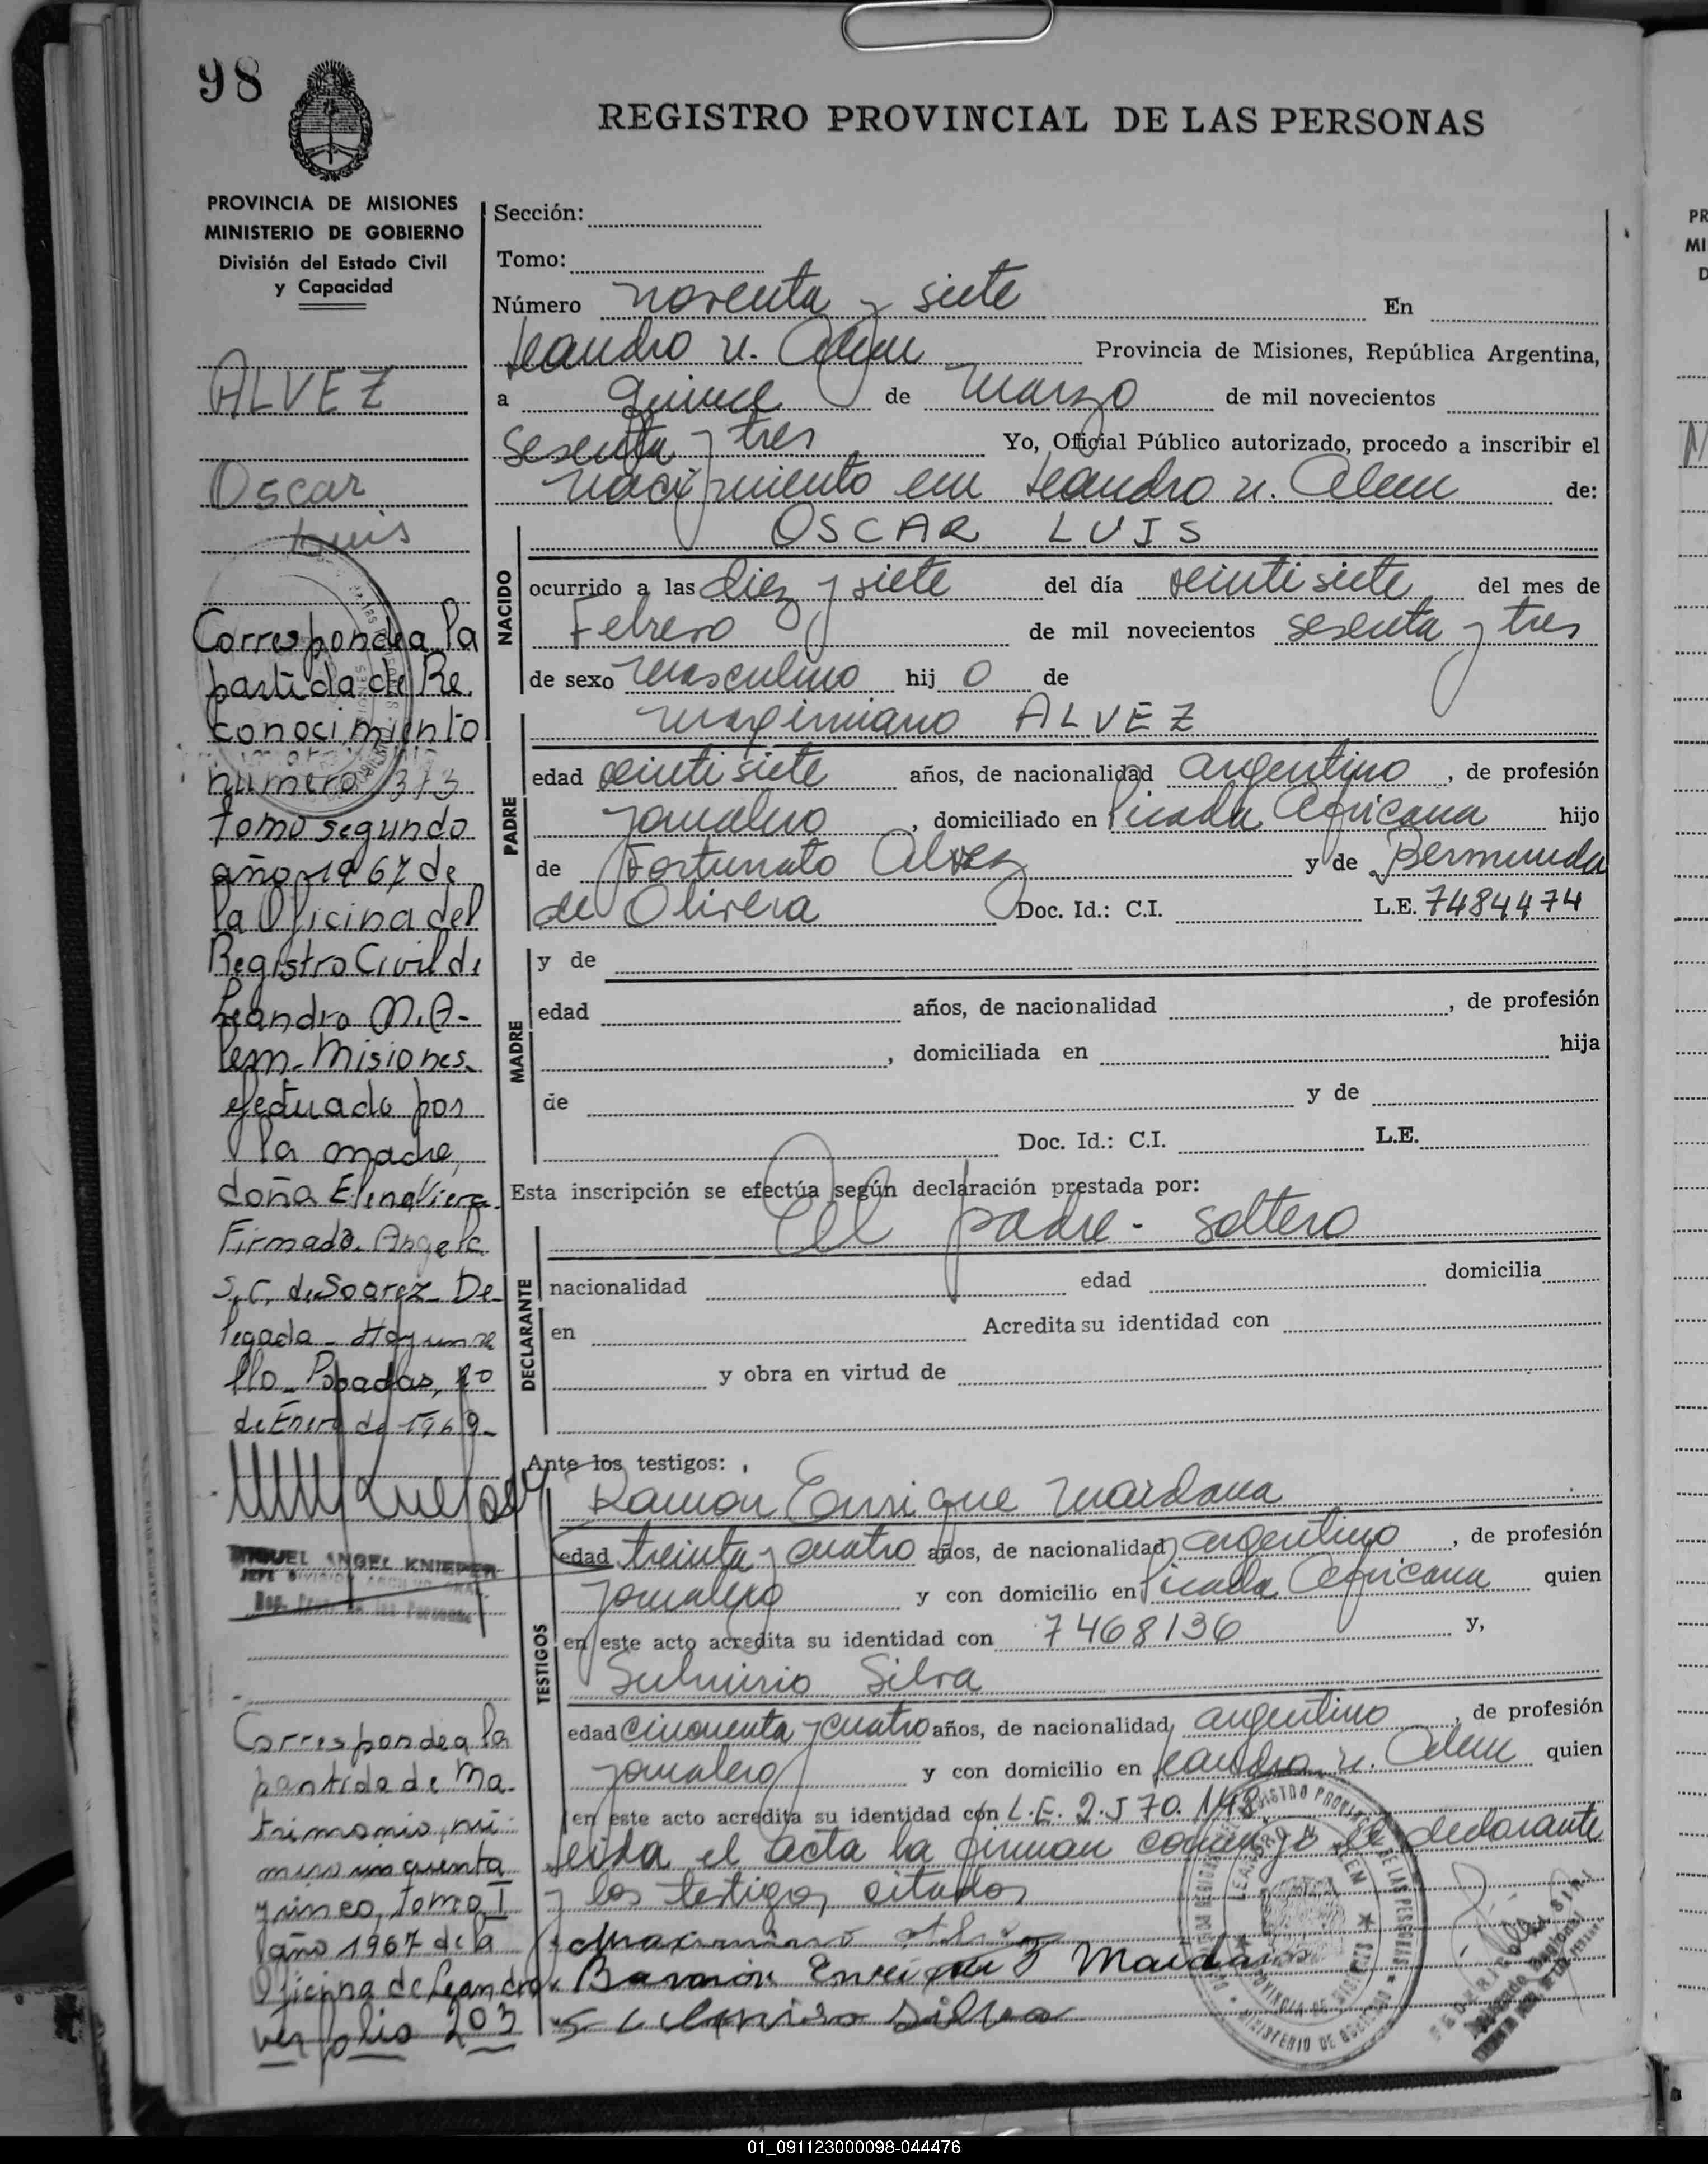 98
REGISTRO PROVINCIAL DE LAS PERSONAS
PROVINCIA DE MISIONES
MINISTERIO DE GOBIERNO
División del Estado Civil
y Capacidad
ALVEZ
Oscar
Luis
Corresponde a la
partida de Re
conocimiento
número 373
tomo segundo
año 1967 de
la Oficina del
Registro Civil de
Leandro N. A-
lem - Misiones.
efectuado por
la madre,
doña Elena Viera.
Firmado. Angela
S. C. de Soarez - De-
legada - Hay un se
llo - Posadas, 20
de Enero de 1969 -
MIGUEL ANGEL KNIEPER
JEFE DIVISION ARCHIVO GRAL.
Reg. Prov. de las Personas
Corresponde a la
partida de Ma-
trimonio, nú-
mero cincuenta
y cinco, tomo I
año 1967 de la
Oficina de Leandro
ver folio 203
Sección:
Tomo:
Número noventa y siete En
Leandro N. Alem Provincia de Misiones, República Argentina,
a quince de Marzo de mil novecientos
sesenta y tres Yo, Oficial Público autorizado, procedo a inscribir el
nacimiento em Leandro N. Alem de:
NACIDO
OSCAR LUIS
ocurrido a las diez y siete del día veintisiete del mes de
Febrero de mil novecientos sesenta y tres
de sexo masculino hij o de
PADRE
Maximiano ALVEZ
edad veintisiete años, de nacionalidad argentino, de profesión
jornalero, domiciliado en Picada Africana hijo
de Fortunato Alvez y de Bermunda
de Olivera Doc. Id.: C.I. L.E. 7484474
MADRE
y de
edad años, de nacionalidad , de profesión
, domiciliada en hija
de y de
Doc. Id.: C.I. L.E.
Esta inscripción se efectúa según declaración prestada por:
DECLARANTE
El padre - soltero
nacionalidad edad domicilia
en Acredita su identidad con
y obra en virtud de
Ante los testigos:
TESTIGOS
Ramon Enrique Maidana
edad treinta y cuatro años, de nacionalidad argentino, de profesión
jornalero y con domicilio en Picada Africana quien
en este acto acredita su identidad con 7468136 y,
Sulmirio Silva
edad cincuenta y cuatro años, de nacionalidad argentino, de profesión
jornalero y con domicilio en Leandro N. Alem quien
en este acto acredita su identidad con L.E. 2.570.148
leida el acta la firman conmigo el declarante
y los testigos citados
REGISTRO PROVINCIAL DE LAS PERSONAS
LEANDRO N. ALEM
PROVINCIA DE MISIONES
MINISTERIO DE GOBIERNO
01_091123000098-044476